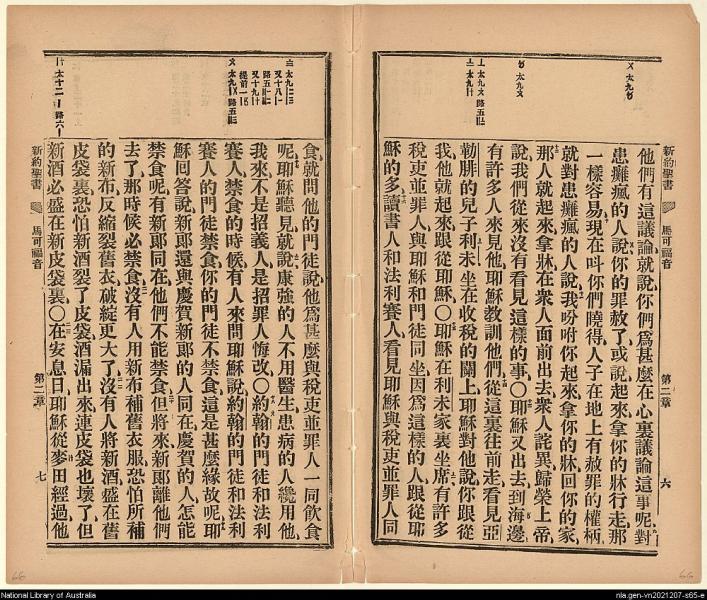 新約聖書
馬可福音
第二章
六
他們有這議論就說你們爲甚麼在心裏議論這事呢對
患癱瘋的人說你的罪赦了或說起來拿你的牀行走那
一樣容易現在呌你們曉得人子在地上有赦罪的權柄
就對患癱瘋的人說我吩咐你起來拿你的牀回你的家
那人就起來拿牀在衆人面前出去衆人詫異歸榮上帝
說我們從來沒有看見這樣的事〇耶穌又出去到海邊
有許多人來見他耶穌教訓他們從這裏往前走看見亞
勒腓的兒子利未坐在收稅的關上耶穌對他說你跟從
我他就起來跟從耶穌〇耶穌在利未家裏坐席有許多
稅吏並罪人與耶穌和門徒同坐因爲這樣的人跟從耶
穌的多讀書人和法利賽人看見耶穌與稅吏並罪人同
食就問他的門徒說他爲甚麼與稅吏並罪人一同飲食
呢耶穌聽見就說康強的人不用醫生患病的人纔用他
我來不是招義人是招罪人悔改〇約翰的門徒和法利
賽人禁食的時候有人來問耶穌說約翰的門徒和法利
賽人的門徒禁食你的門徒不禁食這是甚麼緣故呢耶
穌回答說新郞還與慶賀新郞的人同在慶賀的人怎能
禁食呢有新郞同在他們不能禁食但將來新郞離他們
去了那時候必禁食沒有人用新布補舊衣服恐怕所補
的新布反縮裂舊衣破綻更大了沒有人將新酒盛在舊
皮袋裏恐怕新酒裂了皮袋酒漏出來連皮袋也壞了但
新酒必盛在新皮袋裏〇在安息日耶穌從麥田經過他
新約聖書
馬可福音
第二章
七
National Library of Australia
nla.gen-vn2021207-s65-e